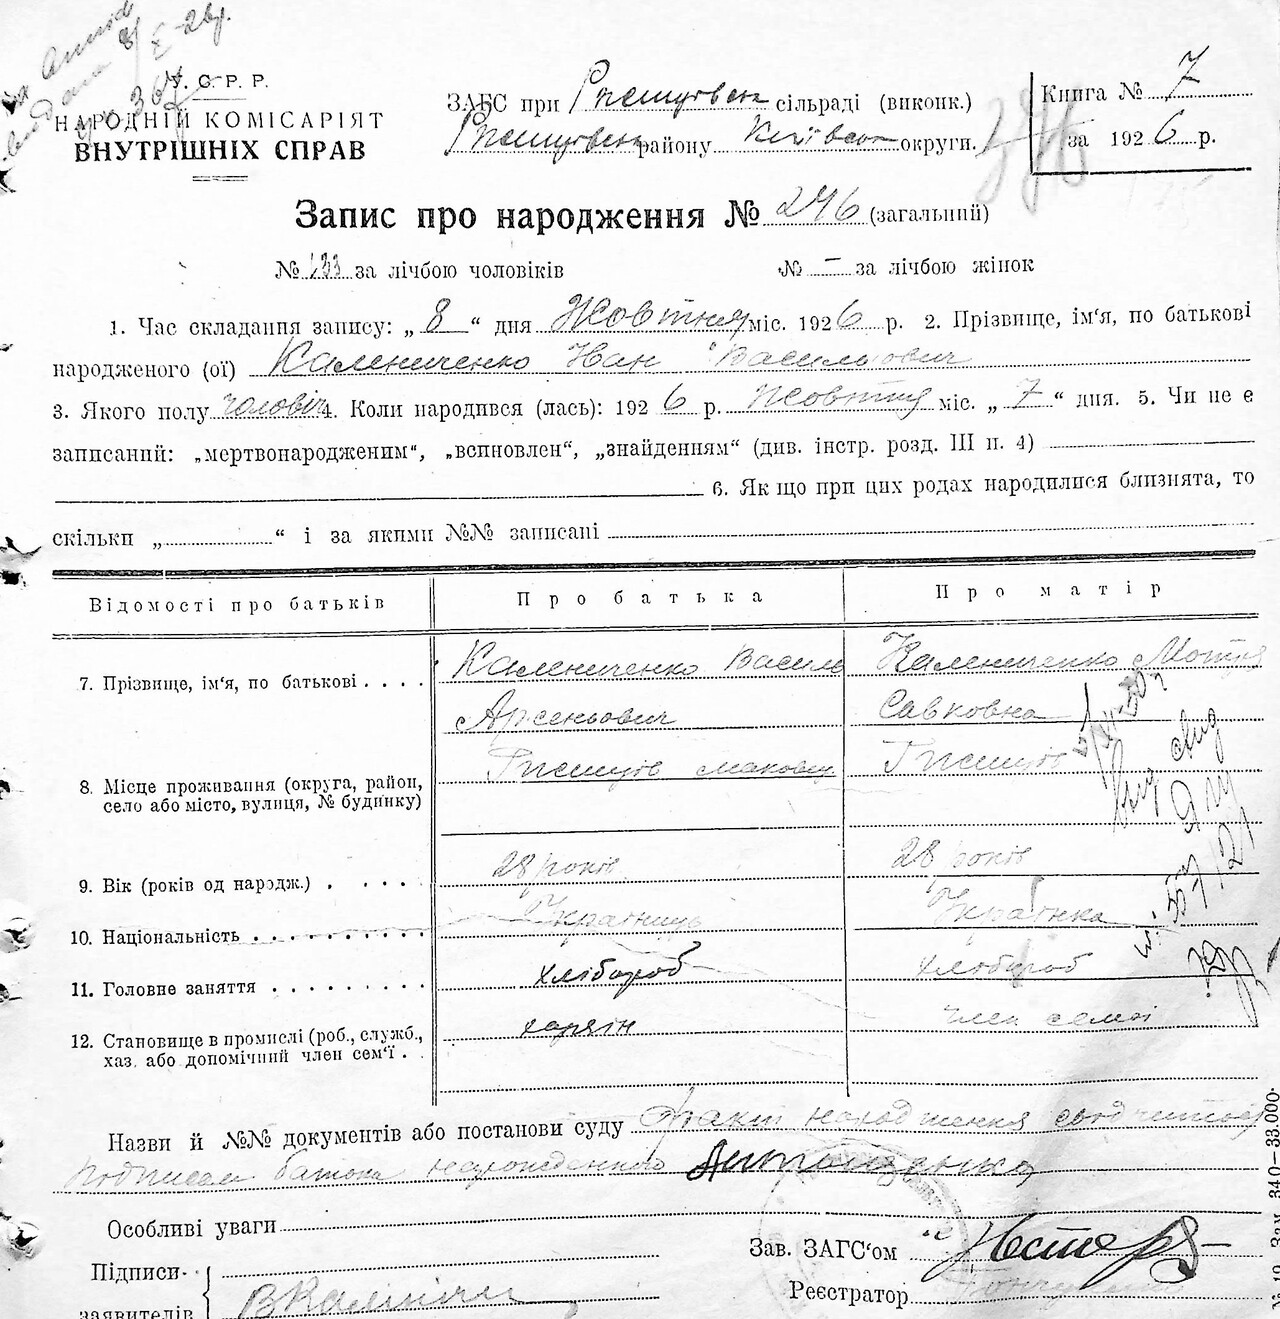 У. С. Р. Р.
НАРОДНІЙ КОМІСАРІЯТ
ВНУТРІШНІХ СПРАВ
ЗАГС при Ржищівськ сільраді (виконк.)
Ржищівськ району Київськ округи.
Книга № 7
за 1926 р.
Запис про народження № 246 (загальний)
№ 133 за лічбою чоловіків № — за лічбою жінок
1. Час складання запису: „ 8 “ дня Жовтня міс. 1926 р. 2. Прізвище, ім'я, по батькові
народженого (ої) Калениченко Иван Васильович
3. Якого полу чоловіч 4. Коли народився (лась): 1926 р. Жовтня міс. „ 7 “ дня. 5. Чи не є
записаний: „мертвонародженим“, „вспновлен“, „знайденням“ (див. інстр. розд. III п. 4)
6. Якщо при цих родах народилися близнята, то
скільки „ “ і за якими №№ записані
Відомості про батьків Про батька Про матір
7. Прізвище, ім'я, по батькові . . . . Калениченко Василь Калениченко Мотря
Арсеньович Савковна
8. Місце проживання (округа, район,
село або місто, вулиця, № будинку)
Ржищів Ржищів
9. Вік (років од народж.) . . . . . 28 років 28 років
10. Національність . . . . . . . . . . Українець Українка
11. Головне заняття . . . . . . . . . хлібороб хлібороб
12. Становище в промислі (роб., службі.,
хаз. або допомічний член сем'ї . .
хазяїн член семьї
Назви й №№ документів або постанови суду Факт народження
подписом батька народженного
Особливі уваги
Зав. ЗАГС'ом
Підписи
заявителів
Реєстратор